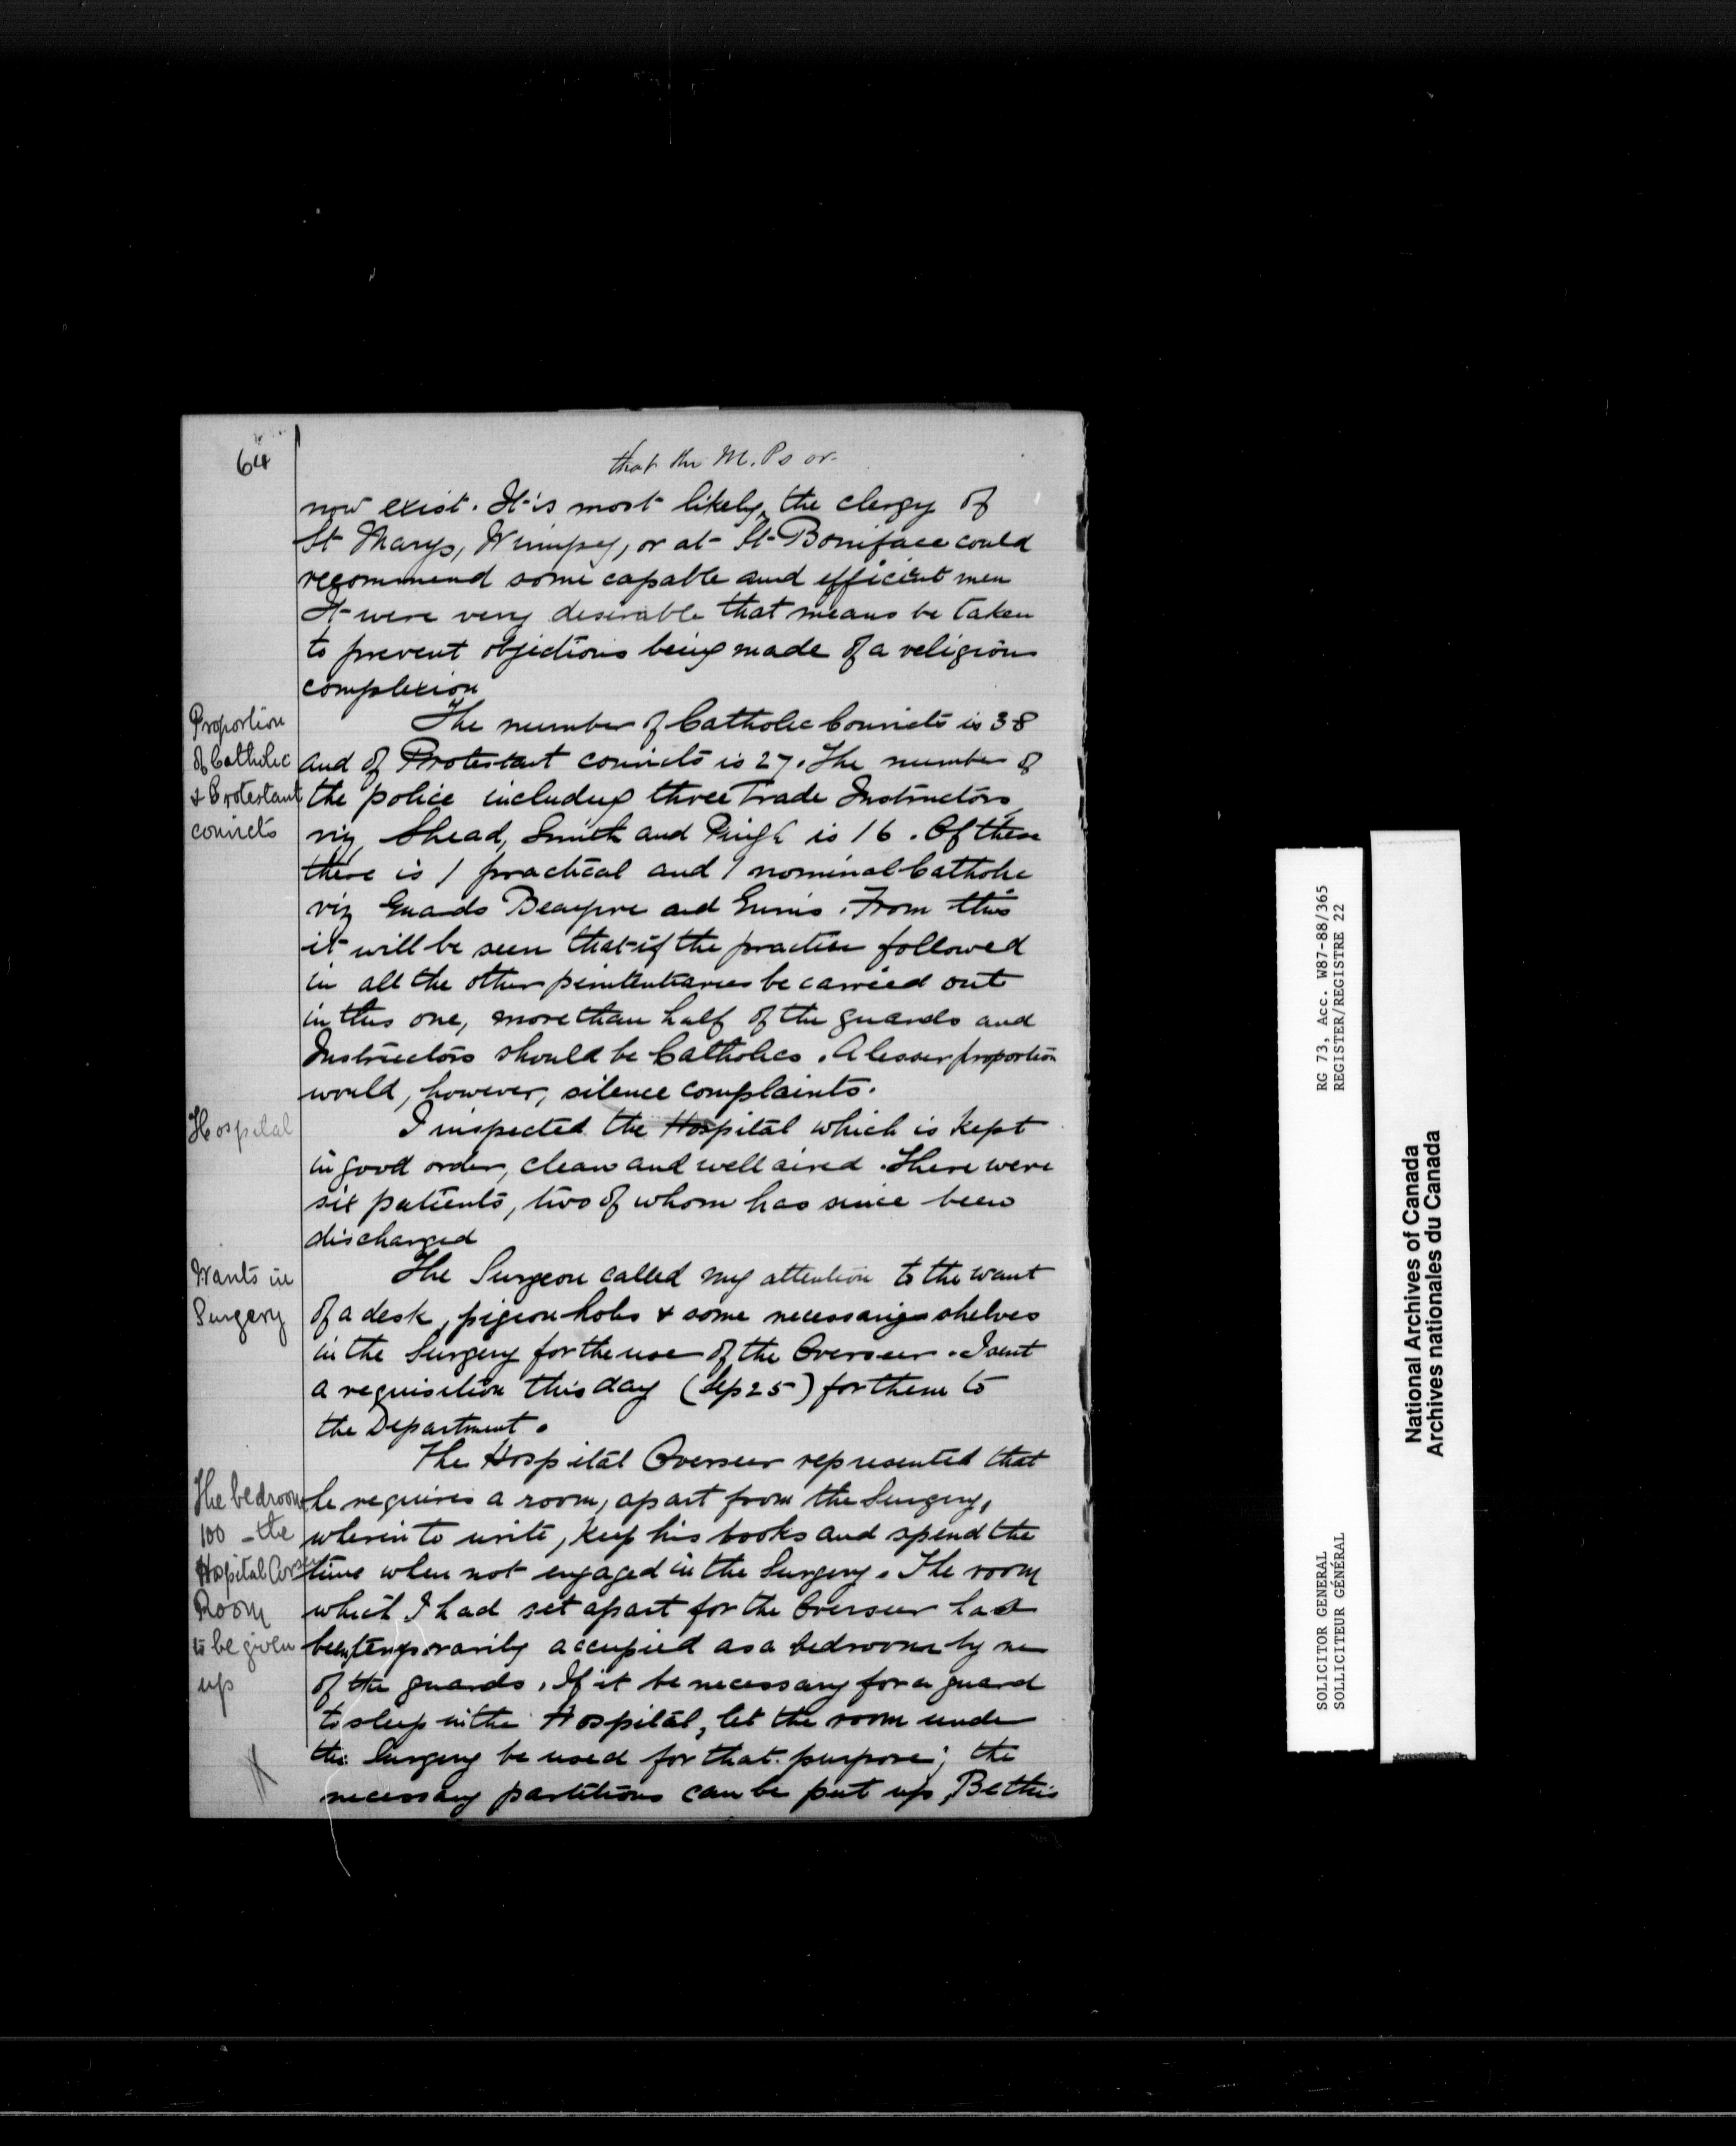 64
that the M.Ps or
now exist. It is most likely, the clergy of
St Marys, Winnipeg, or at St Boniface could
recommend some capable and efficient men
It were very desirable that means be taken
to prevent objections being made of a religious
complexion
Proportion
of Catholic
& Protestant
convicts
The number of Catholic Convicts is 38
and of Protestant convicts is 27. The number of
the police including three Trade Instructors,
viz, Shead, Smith and is 16. Of these
there is 1 practical and 1 nominal Catholic
viz Guards Beaupre and Ennis. From this
it will be seen that if the practice followed
in all the other penitentiaries be carried out
in this one, more than half of the guards and
Instructors should be Catholics. A lesser proportion
would, however, silence complaints.
Hospital
I inspected the Hospital which is kept
in good order, clean and well aired. There were
six patients, two of whom has since been
discharged
Wants in
Surgery
The Surgeon called my attention to the want
of a desk, pigeon-holes & some necessary shelves
in the Surgery for the use of the Overseer. I sent
a requisition this day (Sep 25) for them to
the Department.
The Hospital Overseer represented that
The bedroom
100 - the
Hospital
Room
to be given
up
he requires a room, apart from the Surgery,
wherein to write, keep his books and spend the
time when not engaged in the Surgery. The room
which I had set apart for the Overseer has
been temporarily occupied as a bedroom by
of the guards. If it be necessary for a guard
to sleep in the Hospital, let the room under
the Surgery be used for that purpose; the
necessary partitions can be put up, Be this
RG 73, Acc. W87-88/365
REGISTER/REGISTRE 22
SOLICITOR GENERAL
SOLLICITEUR GÉNÉRAL
National Archives of Canada
Archives nationales du Canada